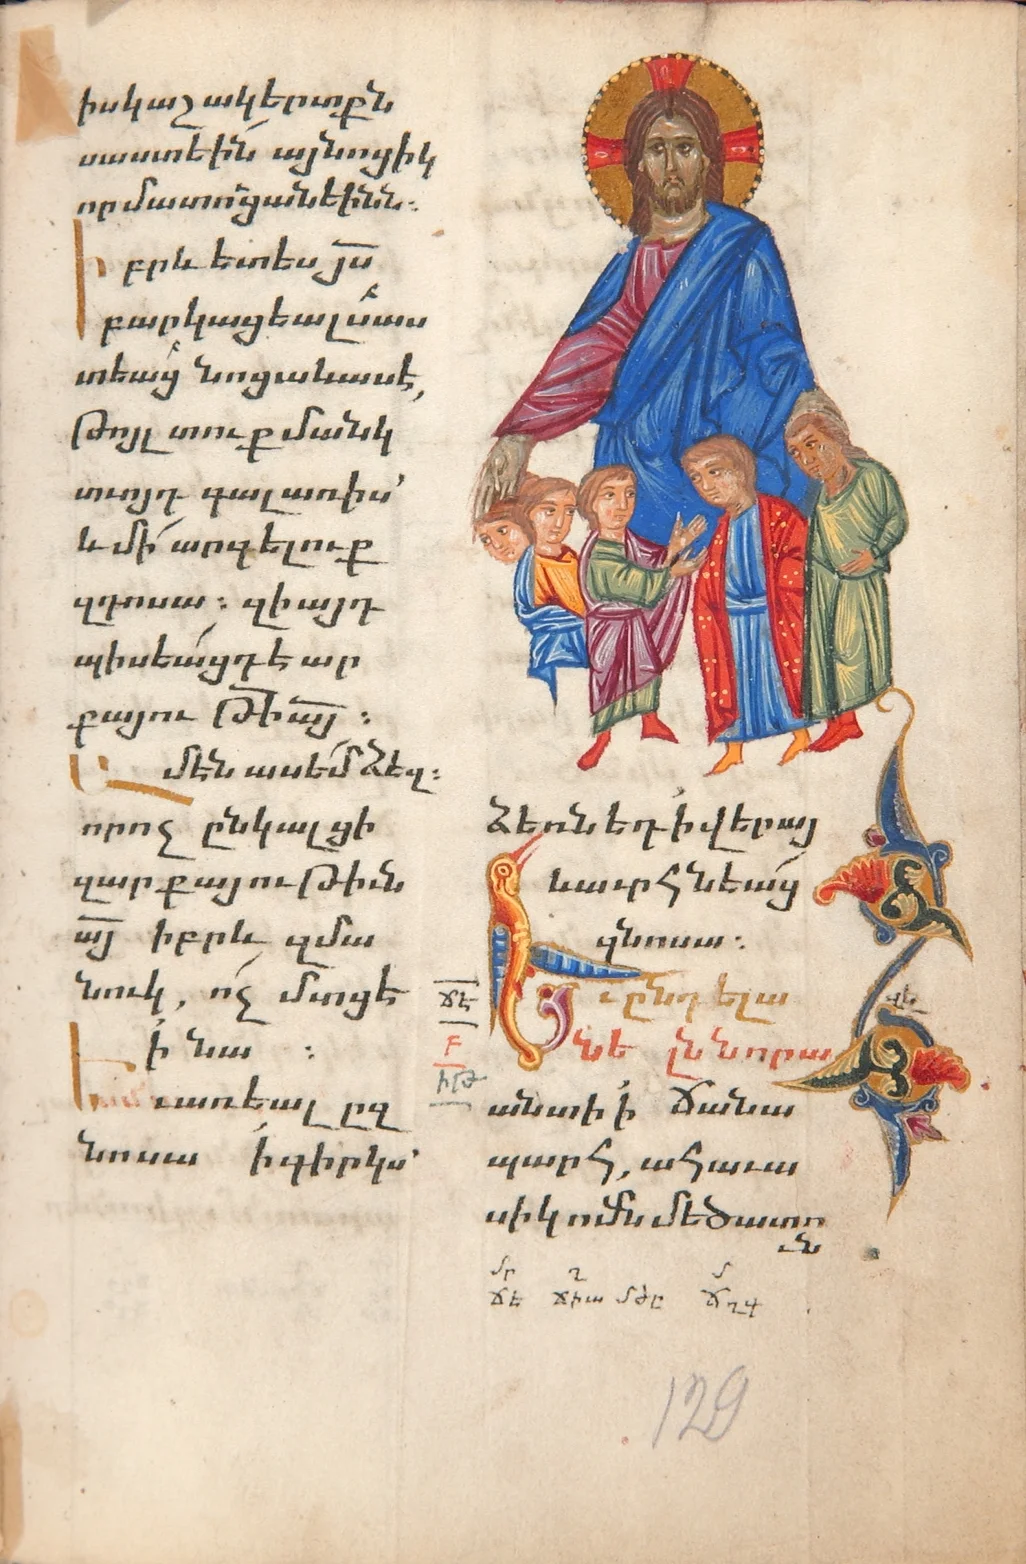 իսկ աշակերտքն
սաստէին այնոցիկ
որ մատուցանէինն։
Իբրև ետես յս
բարկացեալ սաս
տեաց նոցա և ասէ,
Թոյլ տուք մանկ
տւոյդ գալ առ իս՝
և մի արգելուք
զդոսա։ զի այդ
պիսեացդ է ար
քայու թի այ։
Ամէն ասեմ ձեզ։
որ ոչ ընկալցի
զարքայութիւն
այ իբրև զմա
նուկ, ոչ մտցէ
ի նա։
Եւ առեալ ըզ
նոսա ի գիրկս՝
ձեռն եդ ի վերայ
և աւրհնեաց
զնոսա։
Եւ ընդ ելա
նել նորա
անտի ի ճանա
պարհ, ահաւա
սիկ ոմն մեծատու
ն
ճէ
129